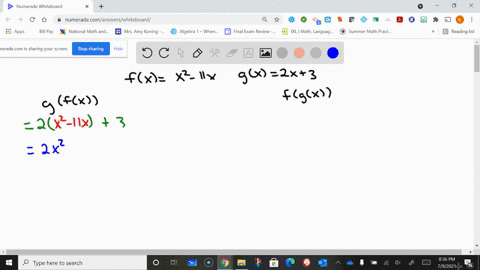 Numerade Whiteboard
numerade.com/answers/whiteboard/
Apps
Bill Pay
National Math and...
Mrs. Amy Koning -...
Algebra 1 – Whenev...
Final Exam Review -...
IXL | Math, Languag...
Summer Math Pract...
Reading list
numerade.com is sharing your screen.
Stop sharing
Hide
f(x) = x² - 11x g(x) = 2x + 3
f(g(x))
g(f(x))
= 2(x² - 11x) + 3
= 2x²
Type here to search
8:36 PM